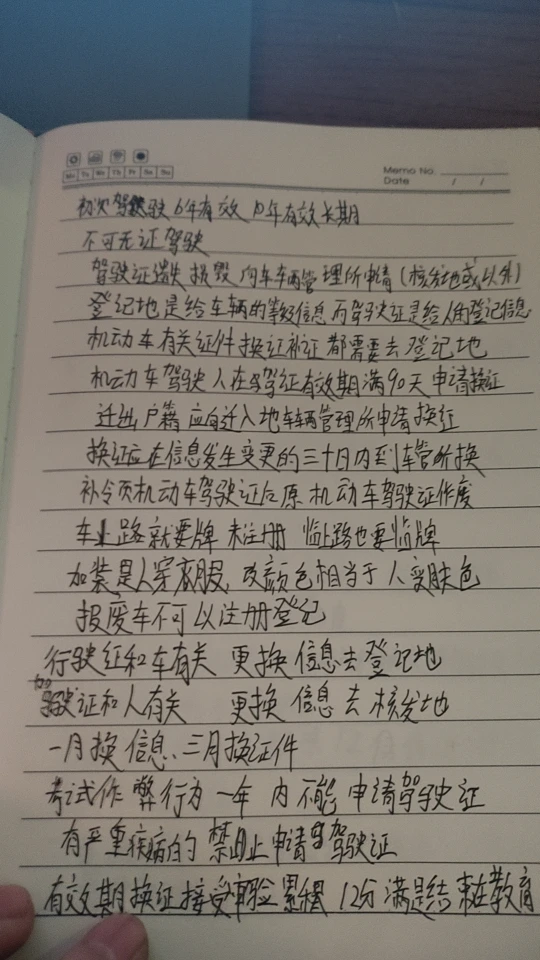 Memo No.
Mo Tu We Th Fr Sa Su
Date / /
初次驾驶 6年有效 10年有效 长期
不可无证驾驶
驾驶证遗失 损毁 向车车辆管理所申请(核发地或以外)
登记地是给车辆的等级信息 而驾驶证是给人的登记信息
机动车有关证件 换证补证 都需要去登记地
机动车驾驶人在驾驶证有效期满90天 申请换证
迁出户籍 应向迁入地车辆管理所申请换证
换证应在信息发生变更的三十日内到车管所换
补领机动车驾驶证后原机动车驾驶证作废
车上路就要牌 未注册 临上路也要临牌
加装是人穿衣服 改颜色相当于人变肤色
报废车不可以注册登记
行驶证和车有关 更换信息去登记地
驾驶证和人有关 更换信息去核发地
一月换信息、三月换证件
考试作弊行为一年内不能申请驾驶证
有严重疾病的禁止申请驾驶证
有效期换证接受审验 累积12分 满是结束在教育